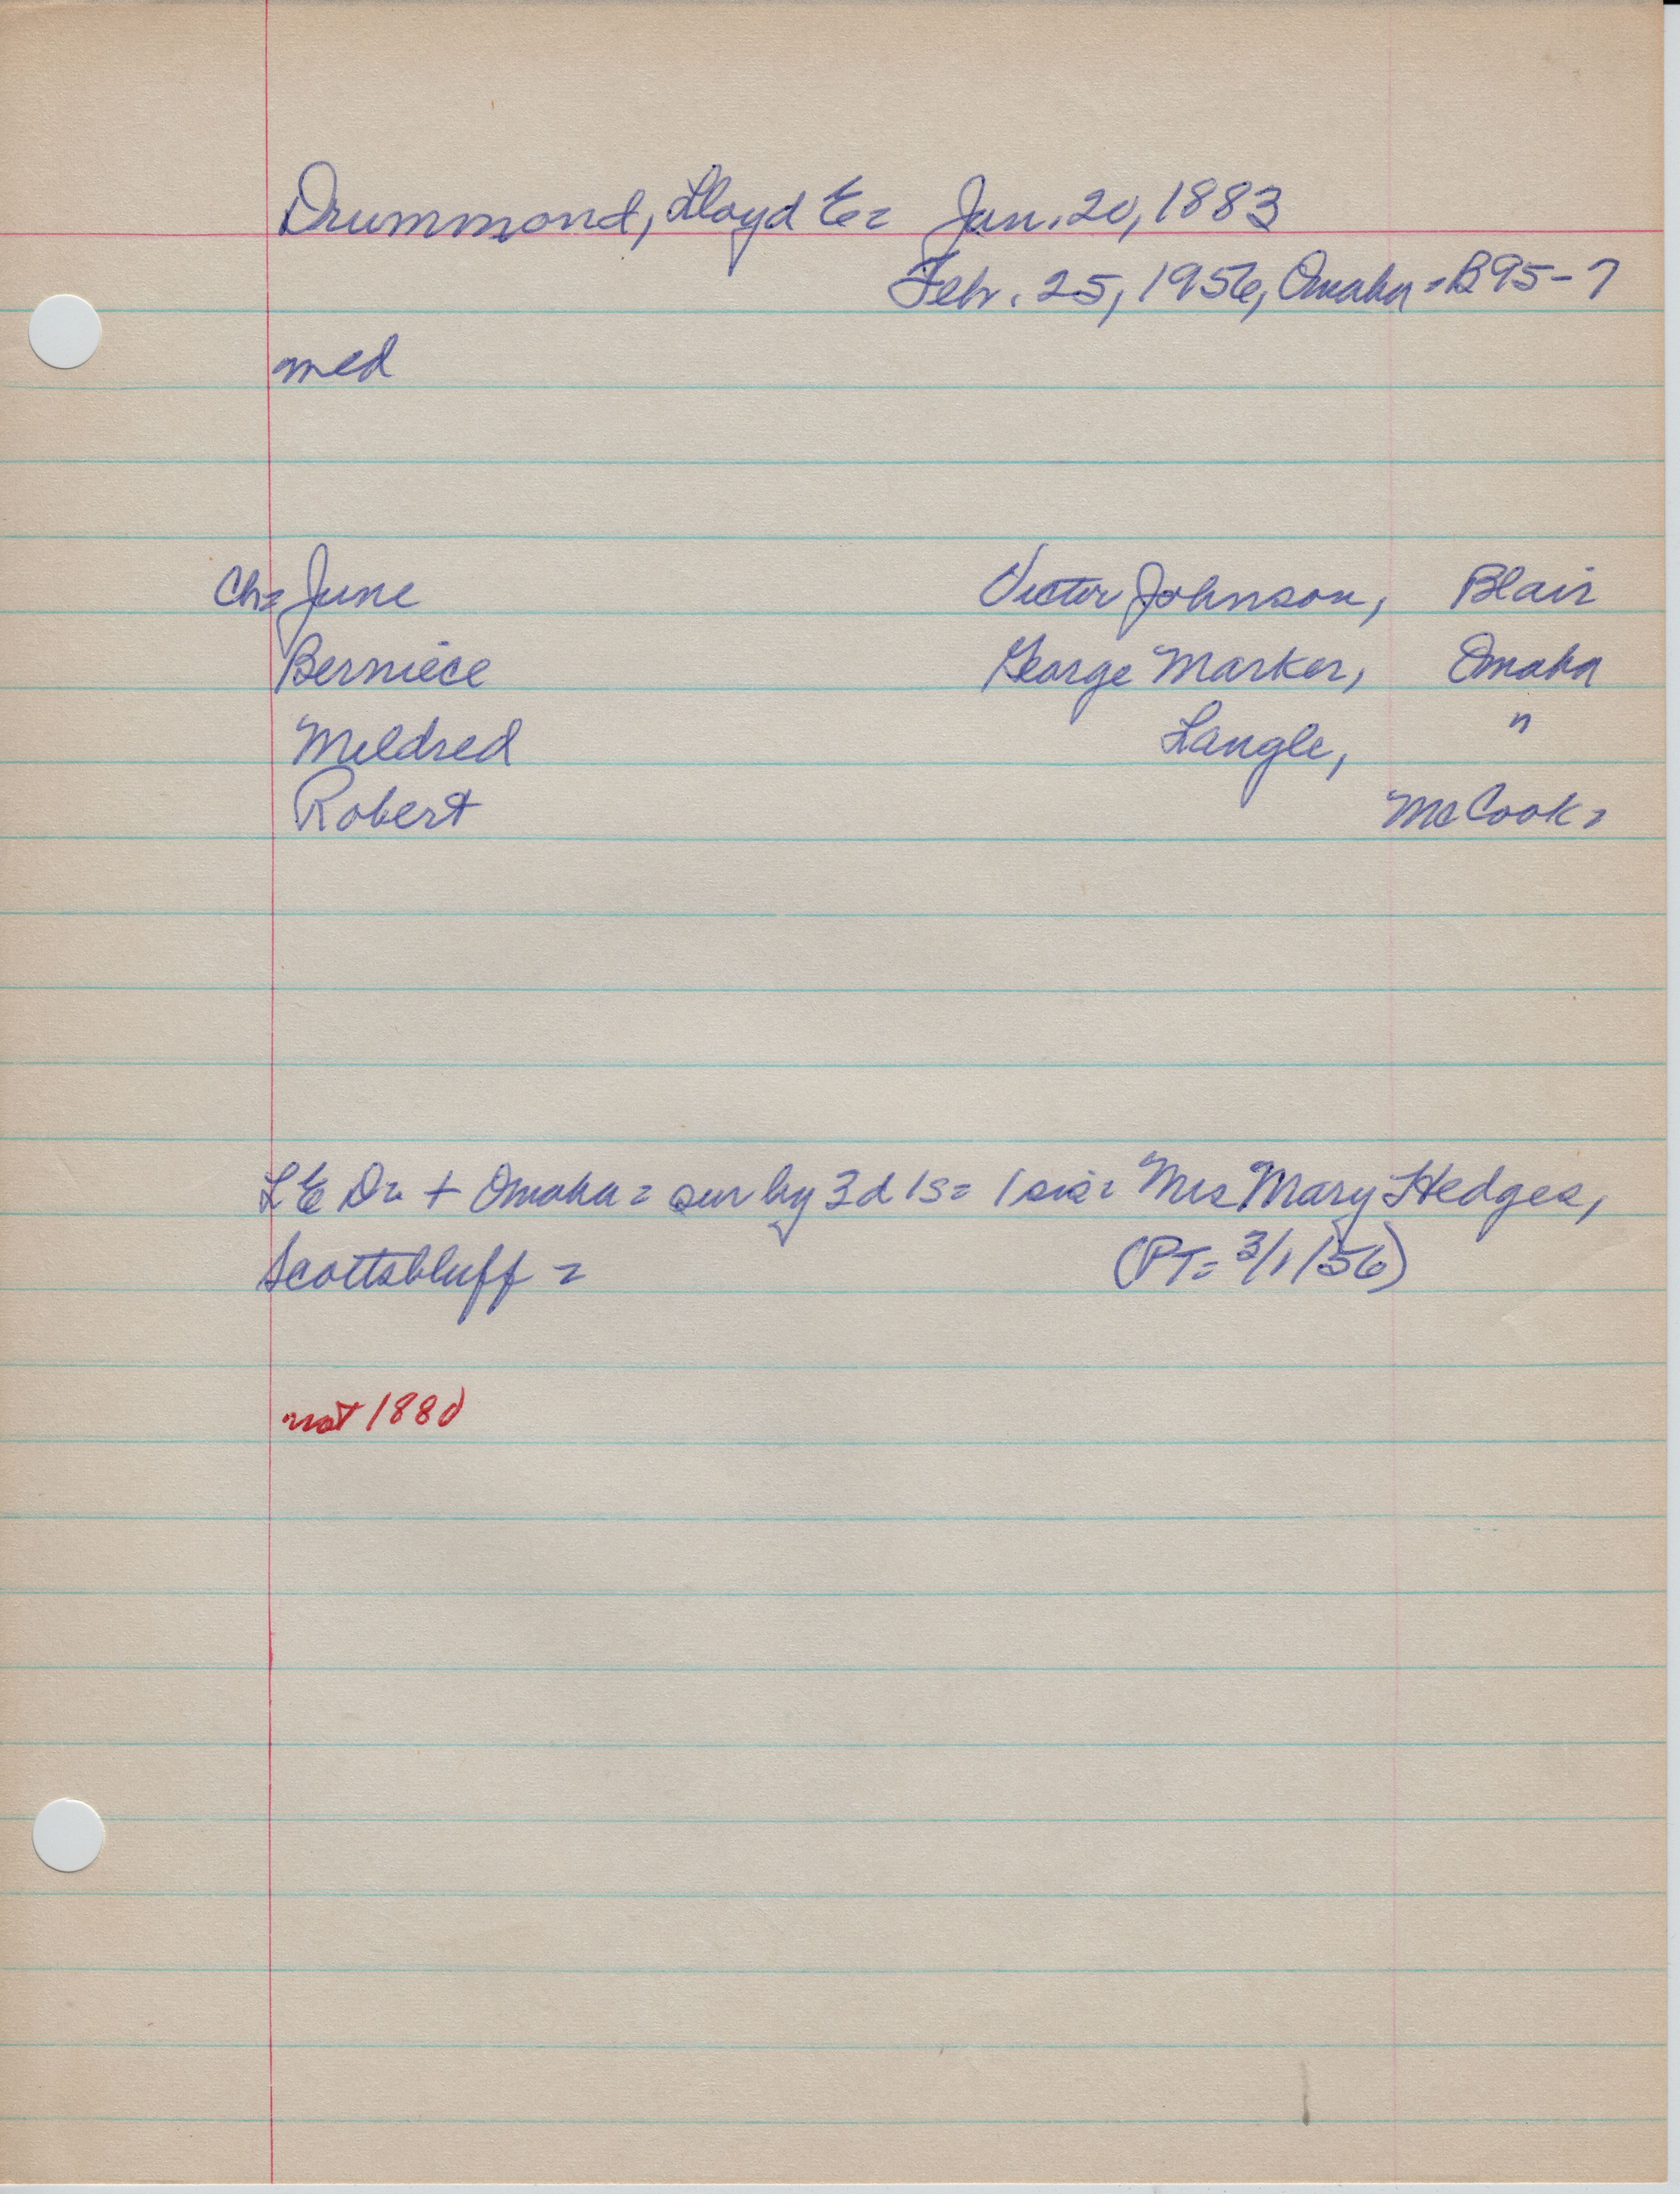 Drummond, Lloyd E= Jan. 20, 1883
Feb. 25, 1956, Omaha = B95-7
med
Ch= June Victor Johnson, Blair
Berniece George Marker, Omaha
Mildred Langle, "
Robert McCook =
L E Dr + Omaha = sur by 3d 1s = 1 sis = Mrs Mary Hedges,
Scottsbluff = (PT= 3/1/56)
not 1880